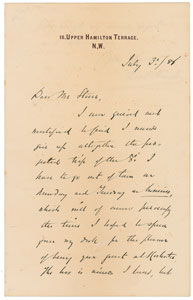 10, UPPER HAMILTON TERRACE.
N.W.
July 3d/86
Dear Mr
I am grieved and
mortified to find I must
give up altogether the pro-
jected trip of the 8th. I
have to go out of town on
Monday and Tuesday on business
which will of course prevent
the time I hoped to
from my desk for the pleasure
of being your guest at Rochester.
The loss is mine I know, but